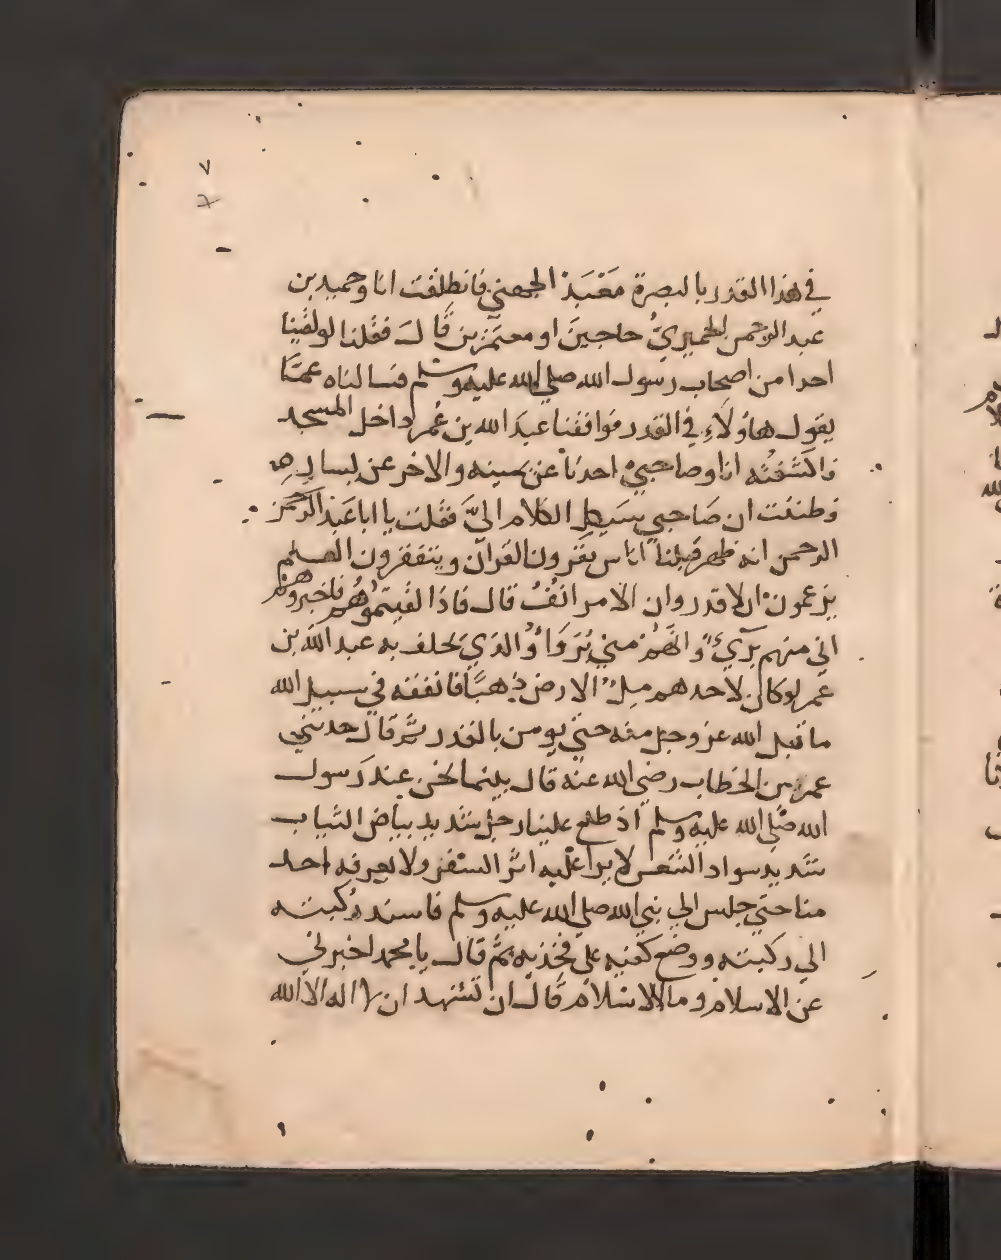 ٧
7
في هذا القدر بالبصرة مَعْبَدْ الجهني فانطلقت انا وحميد بن
عبد الرحمن الحميريُّ حاجين او معتمرين قال فقلنا لو لقينا
احدا من اصحاب رسول الله صلي الله عليه وسلم فسالناه عمَّا
يقول هاؤلاءِ في القدر فوافقنا عبد الله بن عُمر داخل المسجد
فاكتنفته انا وصاحبي احدنا عن يمينه والاخر عن يساره
فظننت ان صَاحبي سيكل الكلام اليَّ فقلت يا ابا عَبد الرحمن
الرحمن انه ظهر قبلنا اناس يقرون القرآن ويتقفرون العلم
يزعمون ان لا قدر وان الامر انُفُ قال فاذا لقيتموهُم فاخبروهم
اني منهم بَريءٌ وانهُم مني بُرَوَاؤُ والذي يَحلف به عبد الله بن
عمر لو كان لاحدهم مِلءُ الارض ذهبًا فانفقه في سبيل الله
ما قبل الله عز وجل منه حتي يومن بالقدر ثم قال حدثني
عمر بن الخطاب رضي الله عنه قال بينما نحن عند رَسول
الله صَلي الله عليه وسلم اذ طلع علينا رجل شديد بياض الثياب
شديد سواد الشعر لا يرا عليه اثر السفر ولا يعرفه احد
منا حتي جلس الي نبي الله صلي الله عليه وسلم فاسند رُكبته
الي ركبته ووضع كفيه علي فخذيه ثم قال يا محمد اخبرني
عن الاسلام وما الاسْلام قَال ان تشهد ان لا اله الا الله